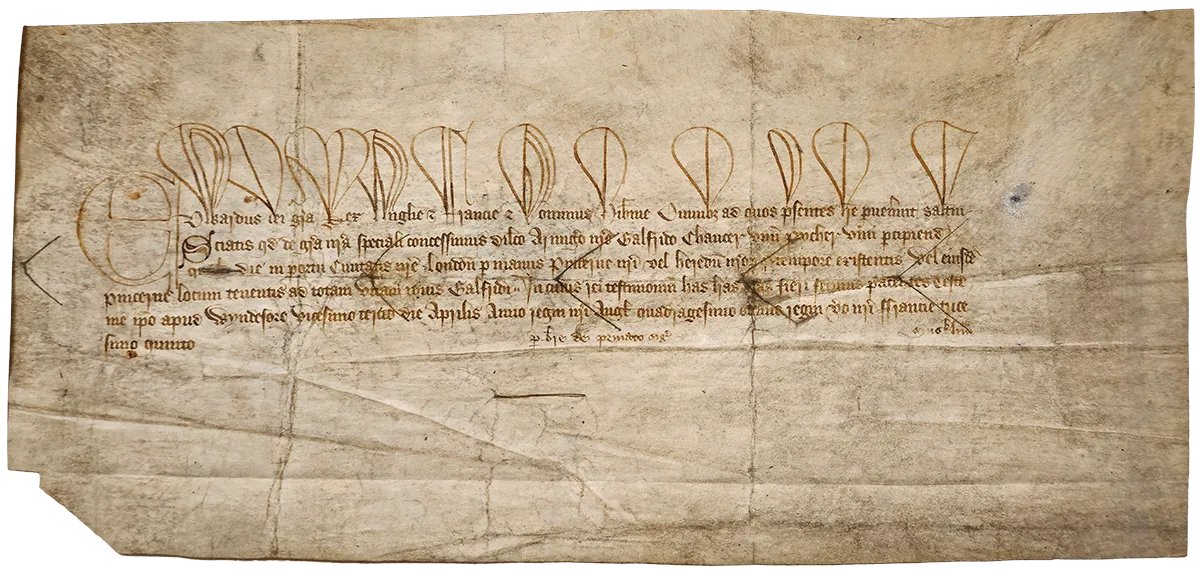 Edwardus dei gra Rex Anglie & Francie & Dominus Hibnie Omnibz ad quos psentes lre pueñint saltm
Sciatis qd de gra nra speciali concessimus dilco Armigo nro Galfrido Chaucer vnu pycher vini pcipiend
die in portu Ciuitatis nre London p manus Pincerne nri vel heredu nror p tempore existentis vel eiusd
pincerne locum tenentis ad totam vitam ipius Galfridi. In cuius rei testimoniu has lras fieri fecimus patentes Teste
me ipo apud Wyndesore vicesimo tercio die Aprilis Anno regni nri Angl quadragesimo octauo regni vo nri Francie trice
simo quinto
p bre de priuato sigillo